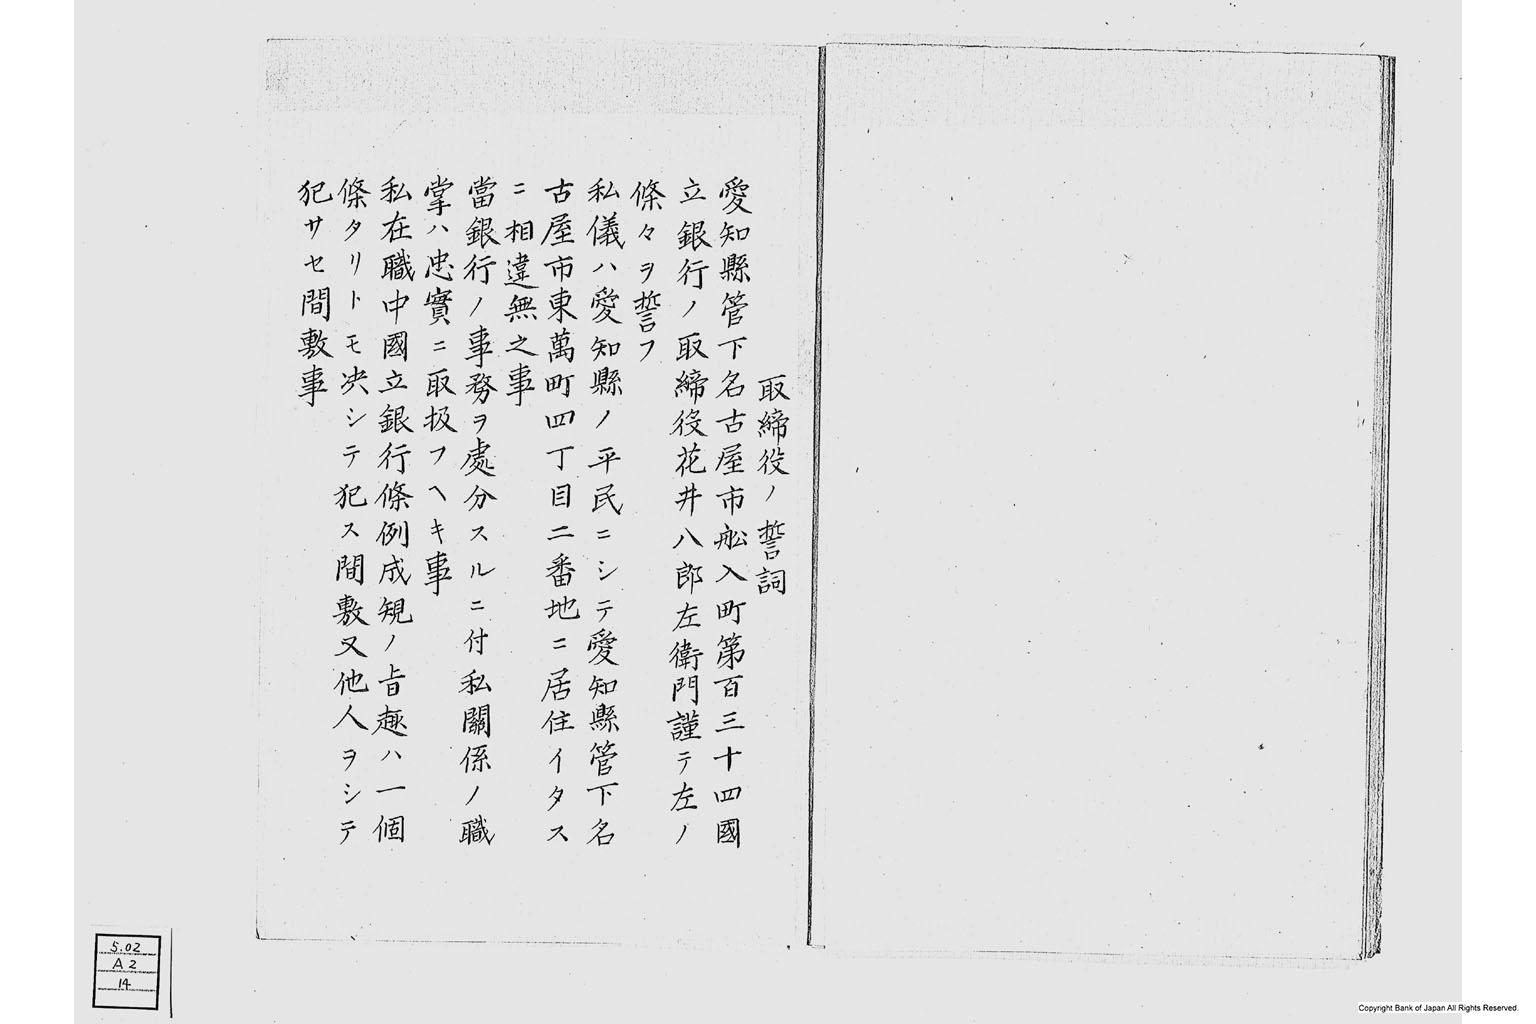 取締役ノ誓詞
愛知縣管下名古屋市舩入町第百三十四國
立銀行ノ取締役花井八郎左衛門謹テ左ノ
條々ヲ誓フ
私儀ハ愛知縣ノ平民ニシテ愛知縣管下名
古屋市東萬町四丁目二番地ニ居住イタス
ニ相違無之事
當銀行ノ事務ヲ處分スルニ付私關係ノ職
掌ハ忠實ニ取扱フヘキ事
私在職中國立銀行條例成規ノ旨趣ハ一個
條タリトモ决シテ犯ス間敷又他人ヲシテ
犯サセ間敷事
5.02
A2
14
Copyright Bank of Japan All Rights Reserved.